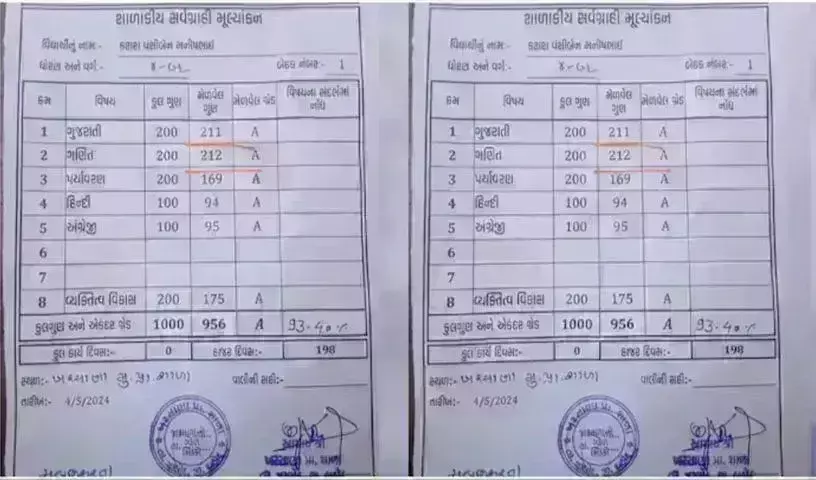 શાળાકીય સર્વગ્રાહી મૂલ્યાંકન
વિદ્યાર્થીનું નામ:-
ધોરણ અને વર્ગ:- બેઠક નંબર:- 1
ક્રમ વિષય કુલ ગુણ મેળવેલ ગુણ મેળવેલ ગ્રેડ વિષયના સંદર્ભમાં નોંધ
1 ગુજરાતી 200 211 A
2 ગણિત 200 212 A
3 પર્યાવરણ 200 169 A
4 હિન્દી 100 94 A
5 અંગ્રેજી 100 95 A
6
7
8 વ્યક્તિત્વ વિકાસ 200 175 A
કુલગુણ અને એકંદર ગ્રેડ 1000 956 A 93.40%
કુલ કાર્ય દિવસ:- 0 હાજર દિવસ:- 198
સ્થળ:- વાલીની સહી:-
તારીખ:- 4/5/2024
શાળાકીય સર્વગ્રાહી મૂલ્યાંકન
વિદ્યાર્થીનું નામ:-
ધોરણ અને વર્ગ:- બેઠક નંબર:- 1
ક્રમ વિષય કુલ ગુણ મેળવેલ ગુણ મેળવેલ ગ્રેડ વિષયના સંદર્ભમાં નોંધ
1 ગુજરાતી 200 211 A
2 ગણિત 200 212 A
3 પર્યાવરણ 200 169 A
4 હિન્દી 100 94 A
5 અંગ્રેજી 100 95 A
6
7
8 વ્યક્તિત્વ વિકાસ 200 175 A
કુલગુણ અને એકંદર ગ્રેડ 1000 956 A 93.40%
કુલ કાર્ય દિવસ:- 0 હાજર દિવસ:- 198
સ્થળ:- વાલીની સહી:-
તારીખ:- 4/5/2024